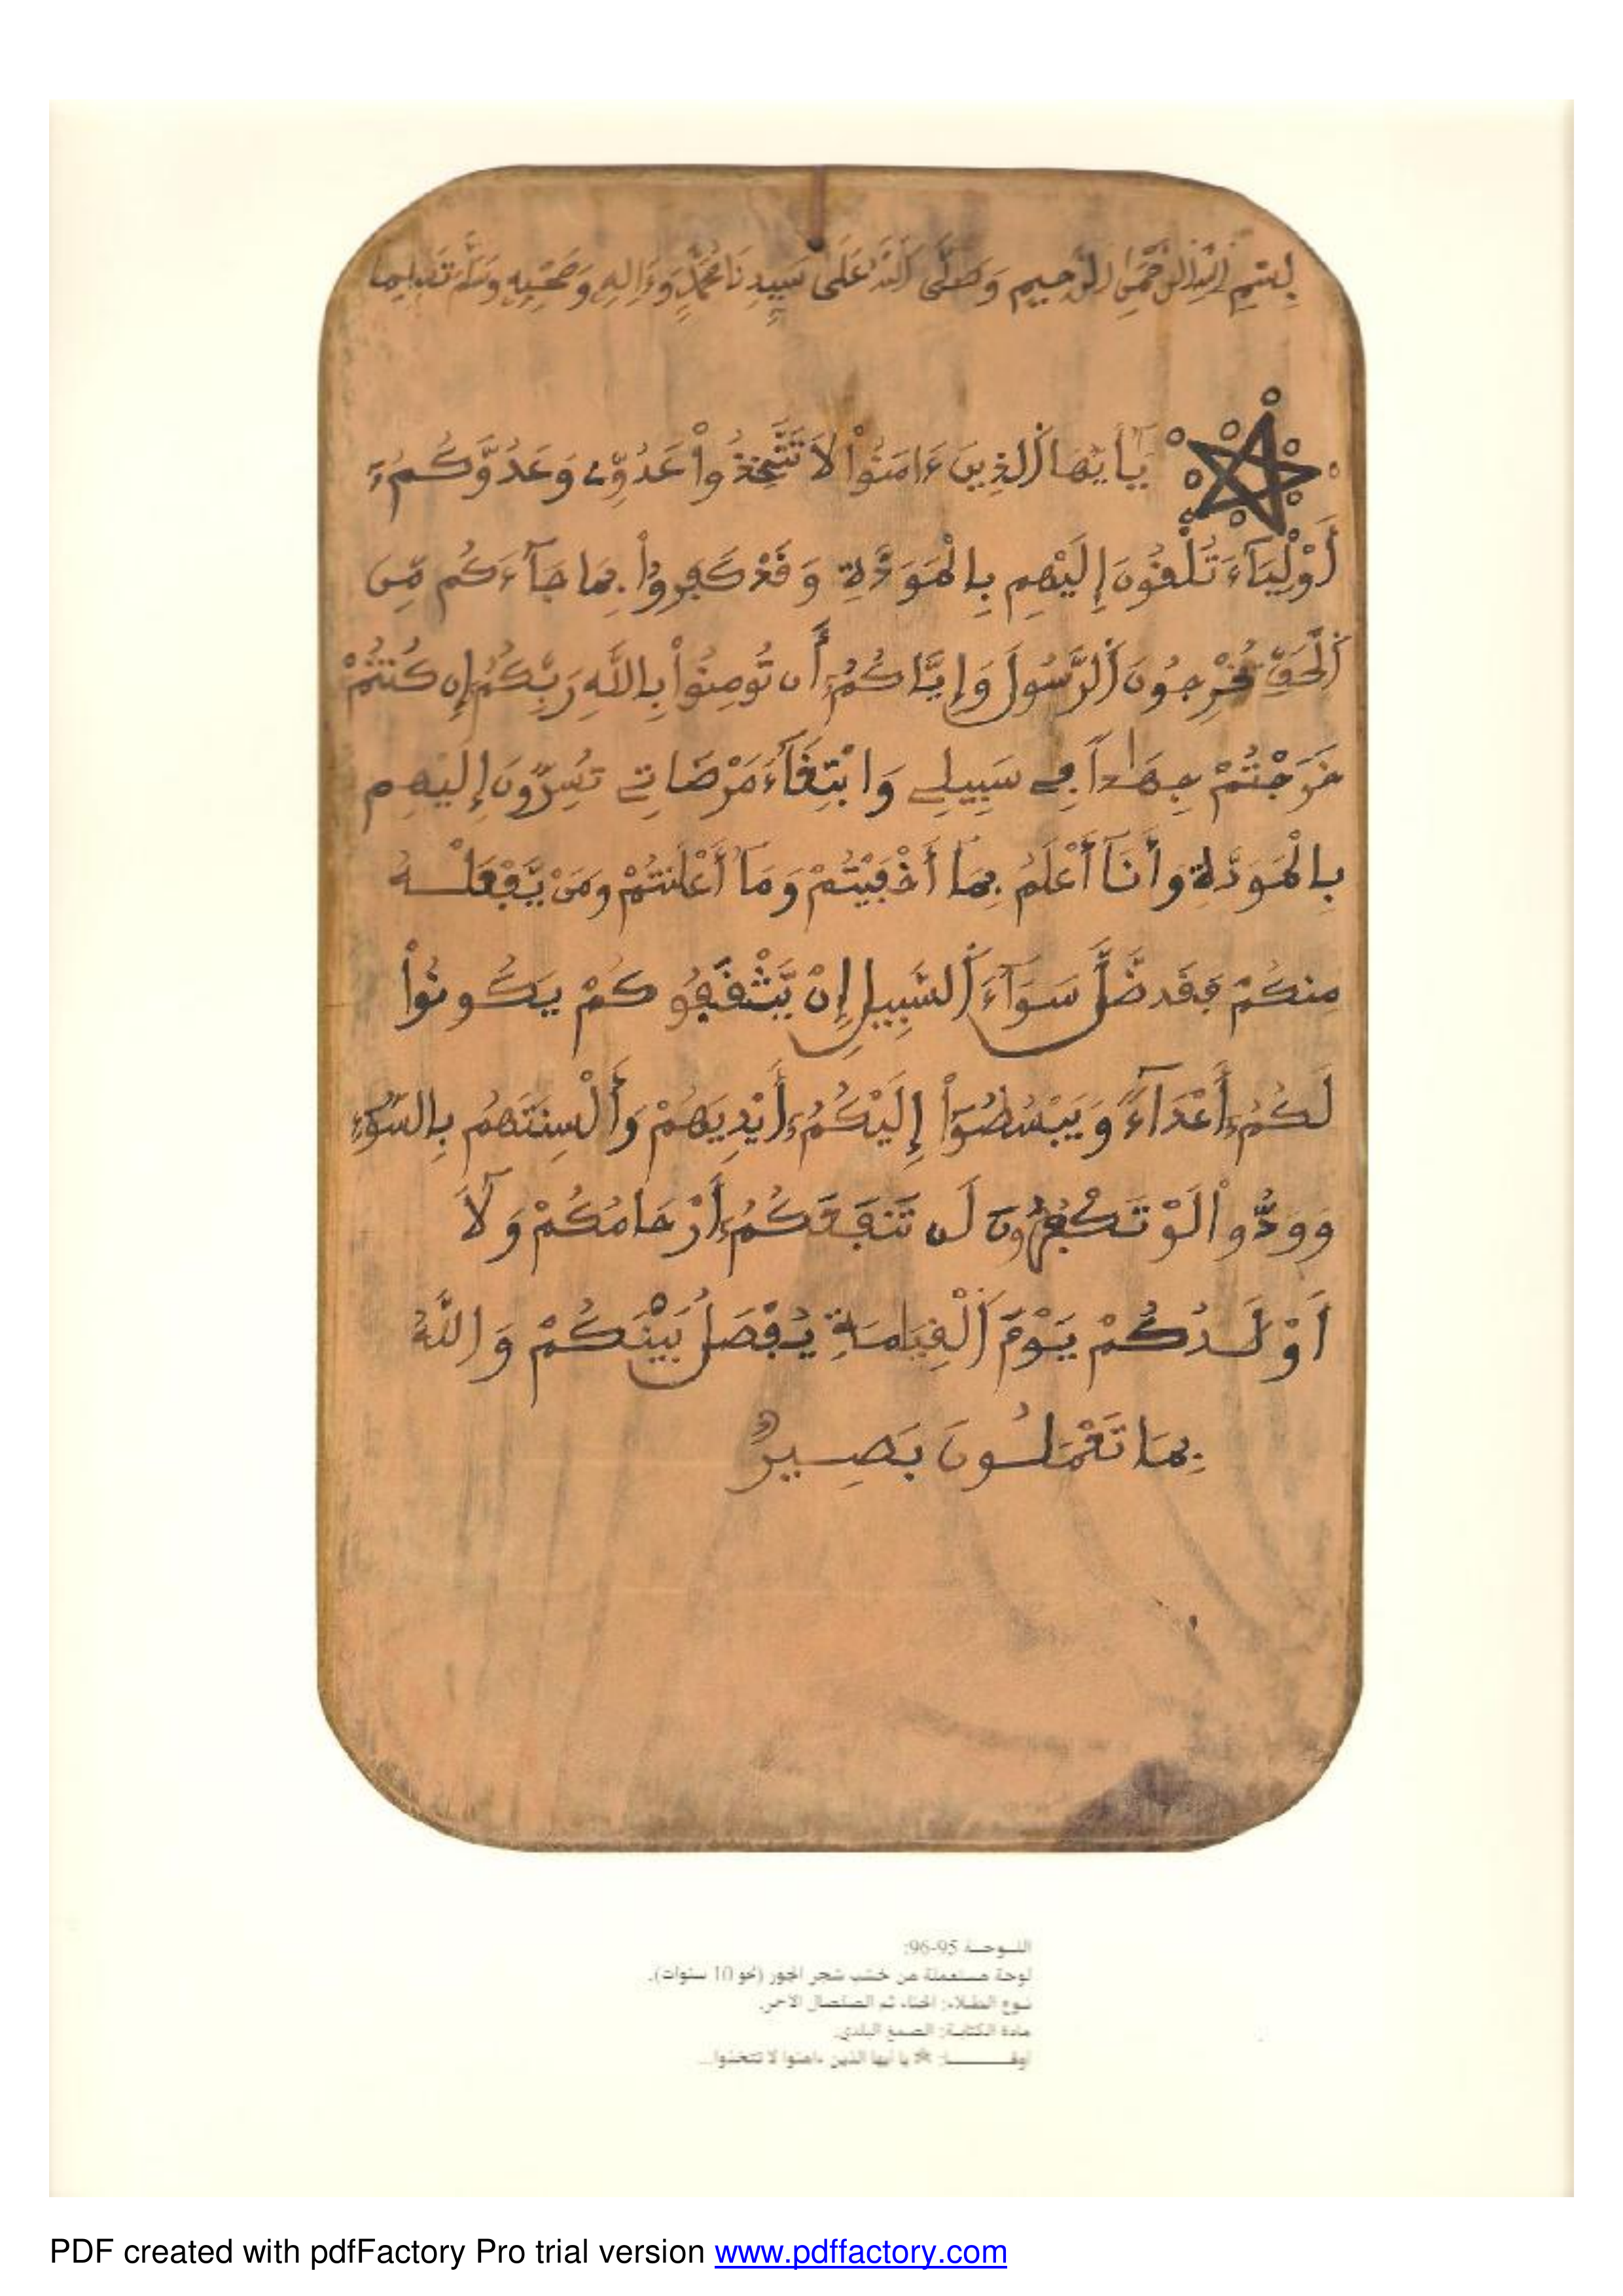 بِسْمِ اللَّهِ الرَّحْمَٰنِ الرَّحِيمِ وَصَلَّى اللَّهُ عَلَى سَيِّدِنَا مُحَمَّدٍ وَءَالِهِ وَصَحْبِهِ وَسَلَّمَ تَسْلِيما
يَٰٓأَيُّهَا اَ۬لذِينَ ءَامَنُواْ لَا تَتَّخِذُواْ عَدُوِّے وَعَدُوَّكُمُۥٓ
أَوْلِيَآءَ تُلْقُونَ إِلَيْهِم بِالْمَوَدَّةِ وَقَدْ كَفَرُواْ بِمَا جَآءَكُم مِّنَ
اَ۬لْحَقِّ يُخْرِجُونَ اَ۬لرَّسُولَ وَإِيَّاكُمُۥٓ أَن تُومِنُواْ بِاللَّهِ رَبِّكُمُۥٓ إِن كُنتُمْ
خَرَجْتُمْ جِهَٰداً فِے سَبِيلِے وَابْتِغَآءَ مَرْضَاتِے تُسِرُّونَ إِلَيْهِم
بِالْمَوَدَّةِ وَأَنَآ أَعْلَمُ بِمَآ أَخْفَيْتُمْ وَمَآ أَعْلَنتُمْ وَمَنْ يَّفْعَلْهُ
مِنكُمْ فَقَد ضَّلَّ سَوَآءَ اَ۬لسَّبِيلِ إِنْ يَّثْقَفُوكُمْ يَكُونُواْ
لَكُمُۥٓ أَعْدَآءً وَيَبْسُطُوٓاْ إِلَيْكُمُۥٓ أَيْدِيَهُمْ وَأَلْسِنَتَهُم بِالسُّوٓءِ
وَوَدُّواْ لَوْ تَكْفُرُونَ لَن تَنفَعَكُمُۥٓ أَرْحَامُكُمْ وَلَآ
أَوْلَٰدُكُمْ يَوْمَ اَ۬لْقِيَٰمَةِ يُفْصَلُ بَيْنَكُمْ وَاللَّهُ
بِمَا تَعْمَلُونَ بَصِيرٌ
اللوحة 95-96:
لوحة مستعملة من خشب شجر الجوز (نحو 10 سنوات).
نوع الطلاء: الحناء ثم الصلصال الأحمر.
مادة الكتابة: الصمغ البلدي.
أولها: يا أيها الذين ءامنوا لا تتخذوا...
PDF created with pdfFactory Pro trial version www.pdffactory.com